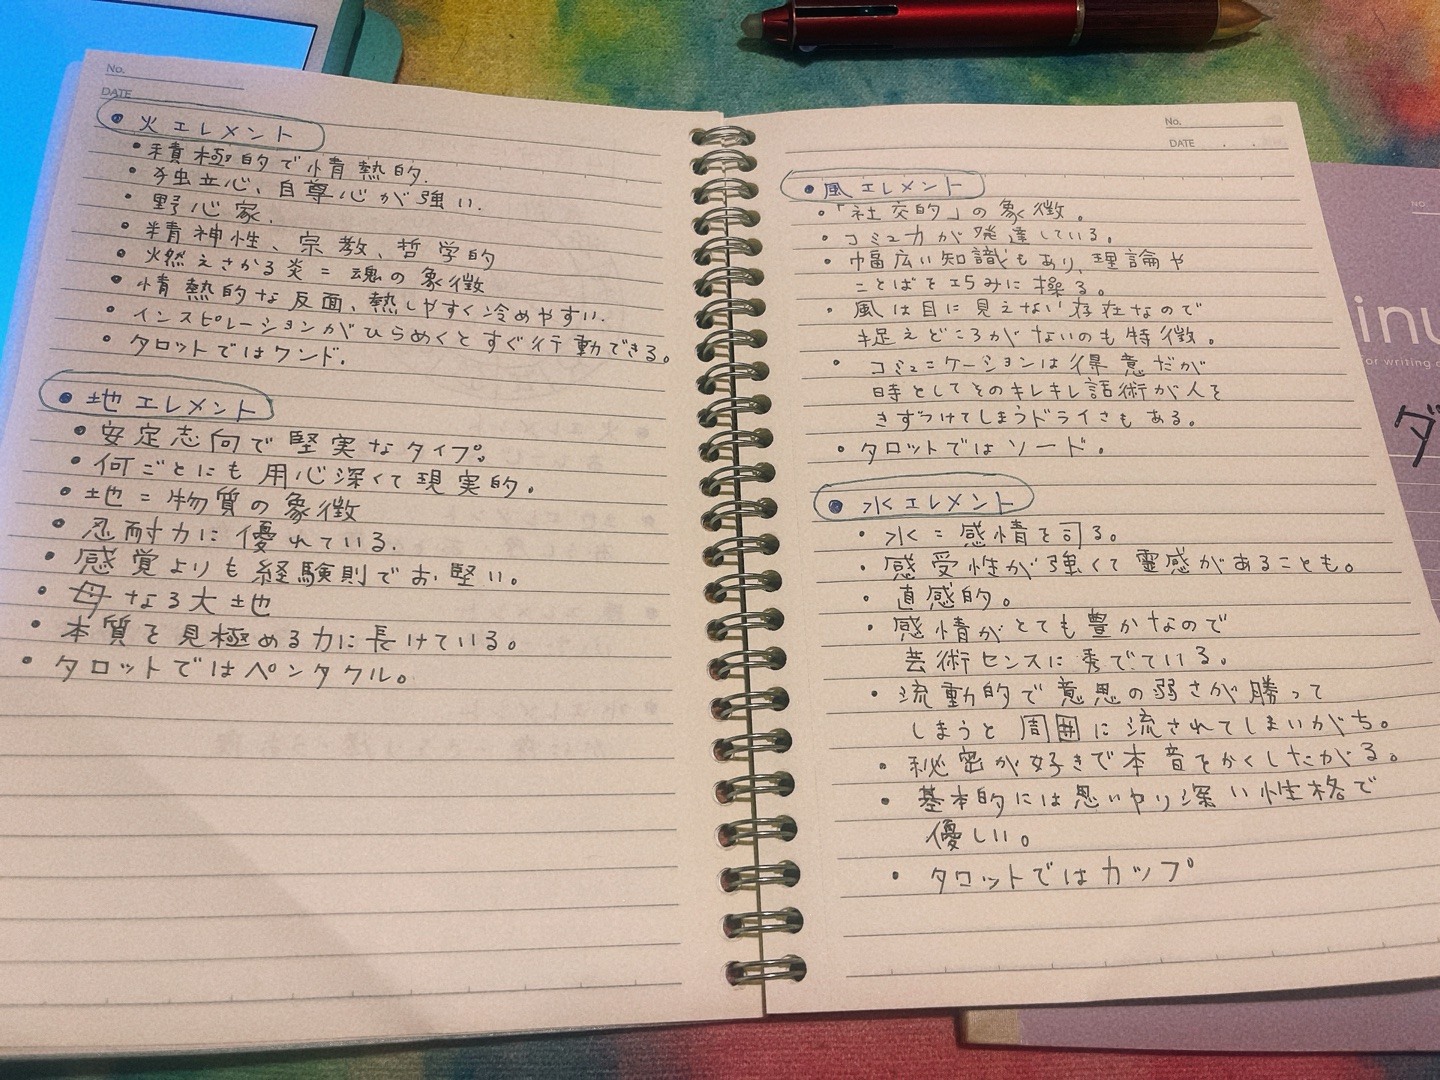 No.
DATE
• 火エレメント
• 積極的で情熱的.
• 独立心、自尊心が強い.
• 野心家.
• 精神性、宗教、哲学的
• 燃えさかる炎=魂の象徴
• 情熱的な反面、熱しやすく冷めやすい.
• インスピレーションがひらめくとすぐ行動できる。
• タロットではワンド.
• 地エレメント
• 安定志向で堅実なタイプ。
• 何ごとにも用心深くて現実的.
• 地=物質の象徴
• 忍耐力に優れている.
• 感覚よりも経験則でお堅い。
• 母なる大地
• 本質を見極める力に長けている。
• タロットではペンタクル。
No.
DATE . .
• 風エレメント
• 「社交的」の象徴。
• コミュ力が発達している。
• 幅広い知識もあり、理論や
ことばを巧みに操る。
• 風は目に見えない存在なので
捉えどころがないのも特徴。
• コミュニケーションは得意だが
時としてそのキレキレ話術が人を
きずつけてしまうドライさもある。
• タロットではソード.
• 水エレメント
• 水=感情を司る。
• 感受性が強くて霊感があることも。
• 直感的。
• 感情がとても豊かなので
芸術センスに秀でている。
• 流動的で意思の弱さが勝って
しまうと周囲に流されてしまいがち。
• 秘密が好きで本音をかくしたがる。
• 基本的には思いやり深い性格で
優しい。
• タロットではカップ
No.
inu
or writing
ダ